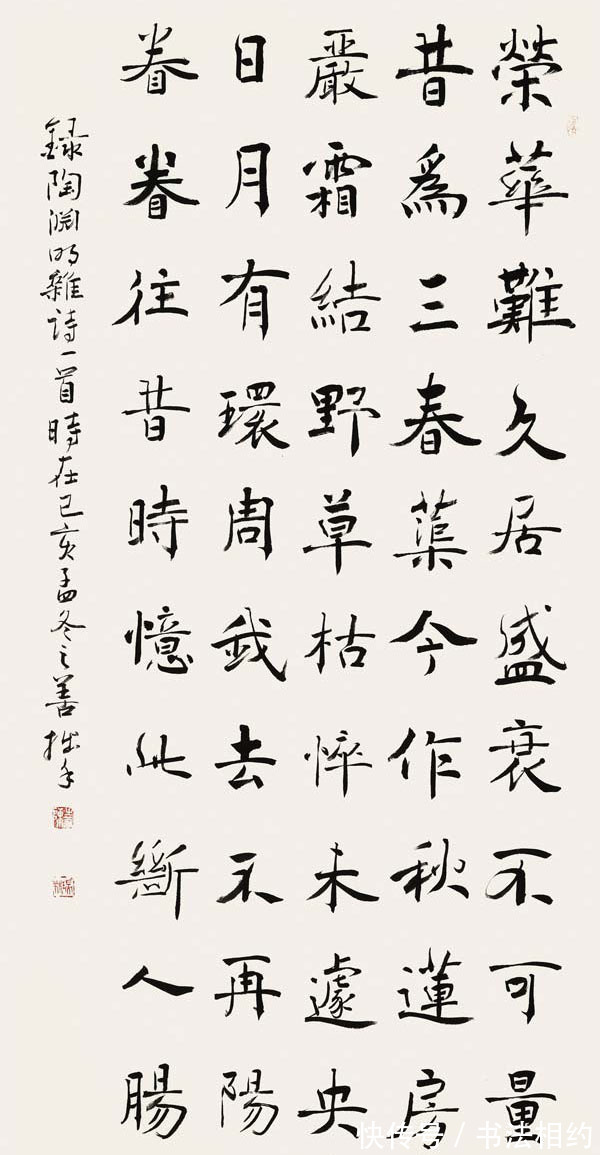 榮華難久居盛衰不可量
昔爲三春蕖今作秋蓮房
嚴霜結野草枯悴未遽央
日月有環周我去不再陽
眷眷往昔時憶此斷人腸
録陶渊明雜詩一首時在己亥孟冬之善拙手
快传号 / 书法相约